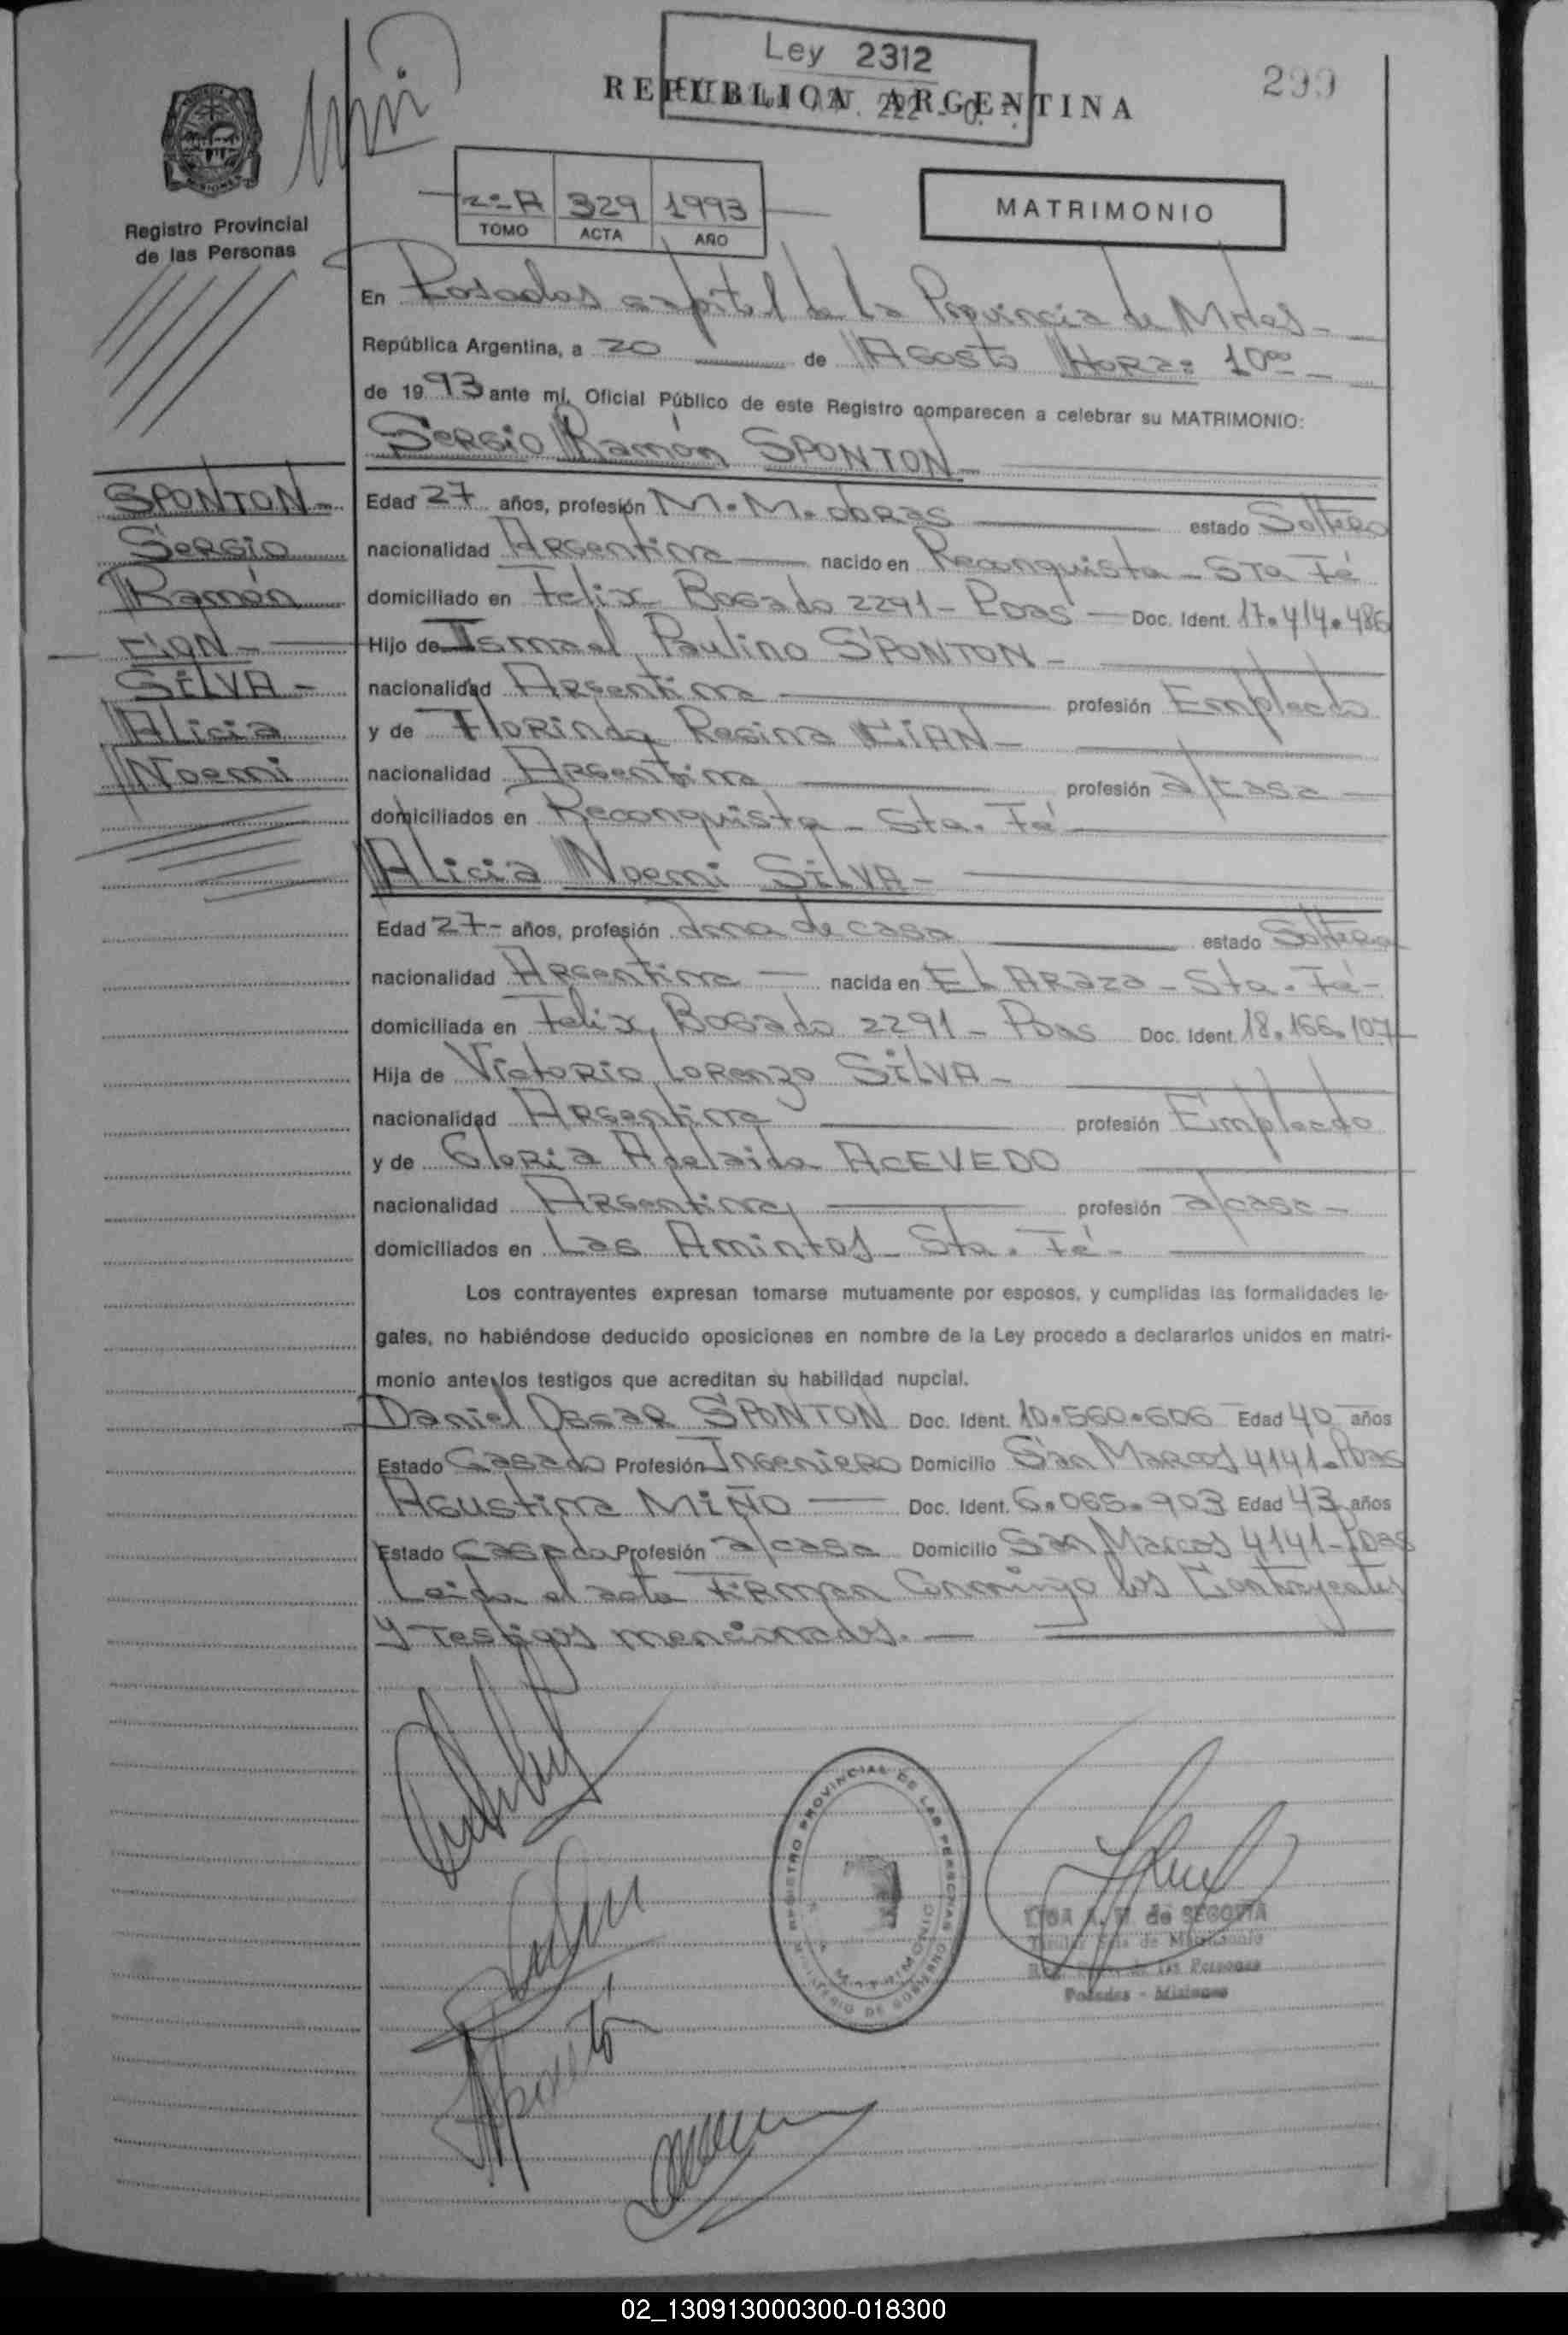 Ley 2312
REPUBLICA ARGENTINA
299
Registro Provincial
de las Personas
2º A 329 1993
TOMO ACTA AÑO
MATRIMONIO
En Posadas capital de la Provincia de Mnes-
República Argentina, a 20 de Agosto Hora: 10⁰⁰
de 1993 ante mí, Oficial Público de este Registro comparecen a celebrar su MATRIMONIO:
Sergio Ramón SPONTON
SPONTON-
Sergio
Ramón
CON-
SILVA-
Alicia
Noemi
Edad 27 años, profesión M.M.obras estado Soltero
nacionalidad Argentina nacido en Reconquista - Sta Fé
domiciliado en Felix Bogado 2291 - Pdas - Doc. Ident. 17.414.486
Hijo de Ismael Paulino SPONTON-
nacionalidad Argentina profesión Empleado
y de Florinda Regina
nacionalidad Argentina profesión a/casa
domiciliados en Reconquista - Sta. Fé
Alicia Noemi SILVA-
Edad 27- años, profesión ama de casa estado Soltera
nacionalidad Argentina - nacida en El Araza - Sta. Fé-
domiciliada en Felix Bogado 2291 - Pdas Doc. Ident. 18.166.107
Hija de Victorio Lorenzo SILVA-
nacionalidad Argentina profesión Empleado
y de Gloria Adelaida ACEVEDO
nacionalidad Argentina profesión a/casa-
domiciliados en Las Amintas - Sta. Fé-
Los contrayentes expresan tomarse mutuamente por esposos, y cumplidas las formalidades le-
gales, no habiéndose deducido oposiciones en nombre de la Ley procedo a declararlos unidos en matri-
monio ante los testigos que acreditan su habilidad nupcial.
Daniel Oscar SPONTON Doc. Ident. 10.560.606 Edad 40 años
Estado Casado Profesión Ingeniero Domicilio San Marcos 4141-Pdas
Agustina MIÑO - Doc. Ident. 6.065.903 Edad 43 años
Estado Casada Profesión a/casa Domicilio San Marcos 4141-Pdas
Leida el acta Firman Conmigo los Contrayentes
y Testigos mencionados.-
REGISTRO PROVINCIAL DE LAS PERSONAS
MINISTERIO DE GOBIERNO
MATRIMONIO
de SEGOVIA
de Matrimonio
de las Personas
Posadas - Misiones
02_130913000300-018300